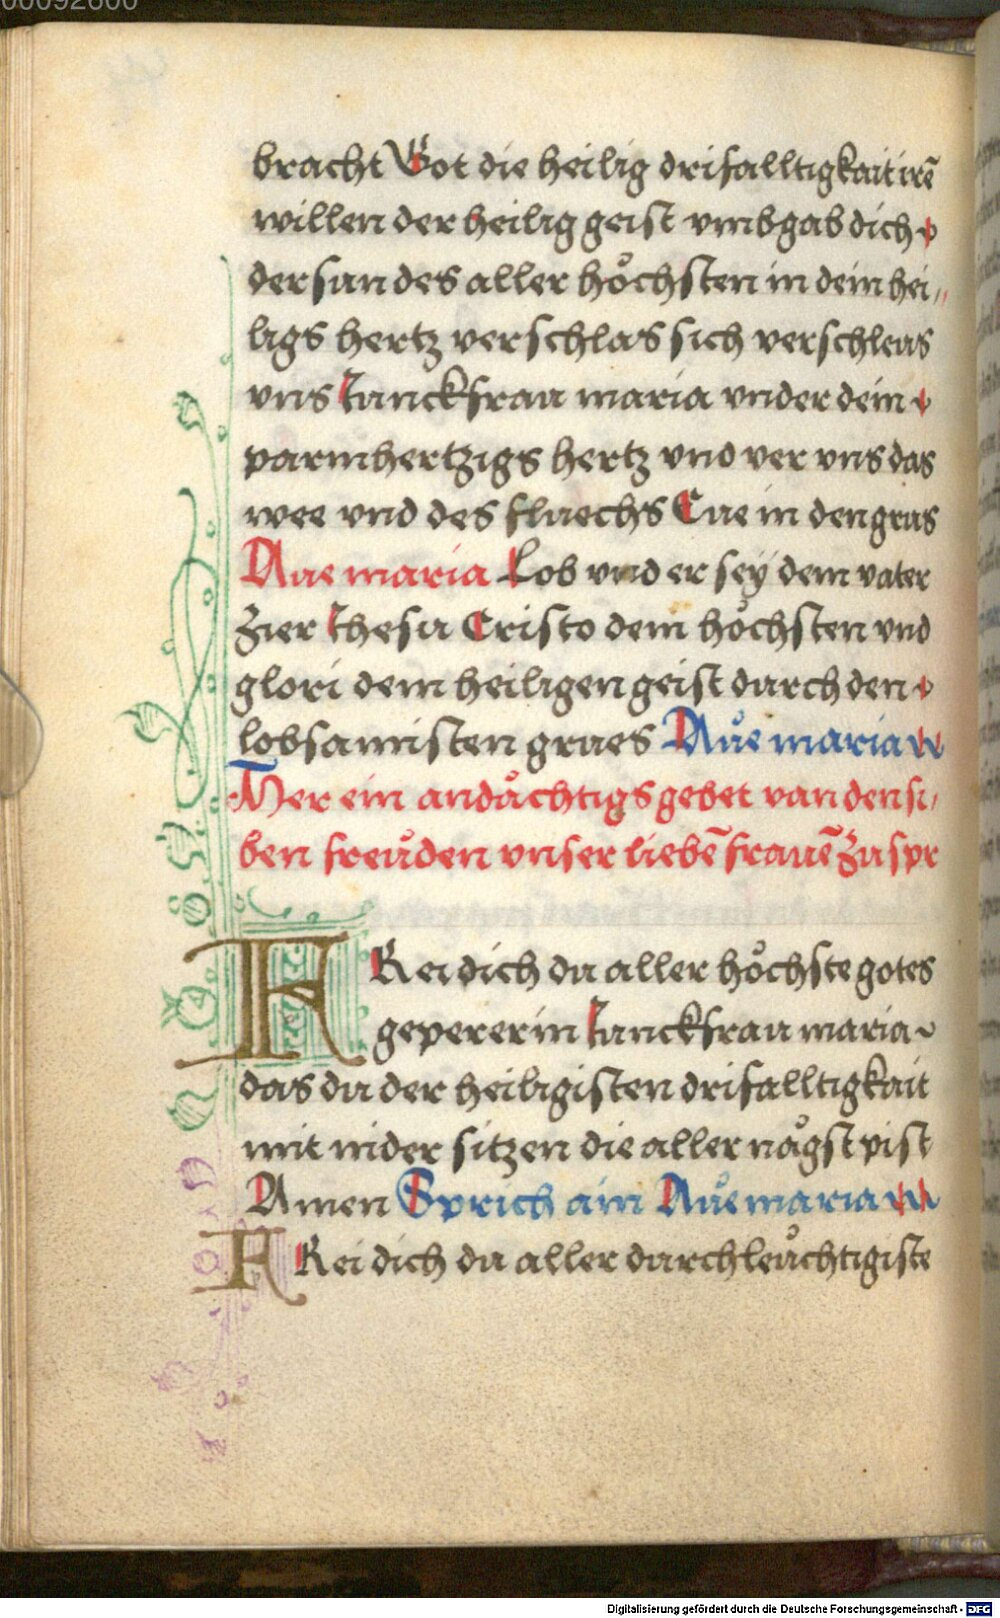 00092600
bracht Got die heilig drifalltigkait irē
willen der heilig geist vmbgab dich
der sun des aller hoͤchsten in dein hei„
ligs hertz verschlos sich verschleus
vns Junckfrau maria vnder dein
parmhertzigs hertz vnd ver vns das
wee vnd des fluechs Eue in den grus
Aue maria Lob vnd er sey dem vater
zier Jhesu Cristo dem hoͤchsten vnd
glori dem heiligen geist durch den
lobsamisten grues Aue maria
Mer ein andaͤchtigs gebet von den si„
ben freuden vnser liebē frauē zu spr
FRei dich du aller hoͤchste gotes
gepererin Junckfrau maria
das du der heiligisten drifalltigkait
mit nider sitzen die aller naͤgst pist
Amen Sprich ain Aue maria
FRei dich du aller durchleuchtigiste
Digitalisierung gefördert durch die Deutsche Forschungsgemeinschaft - DFG